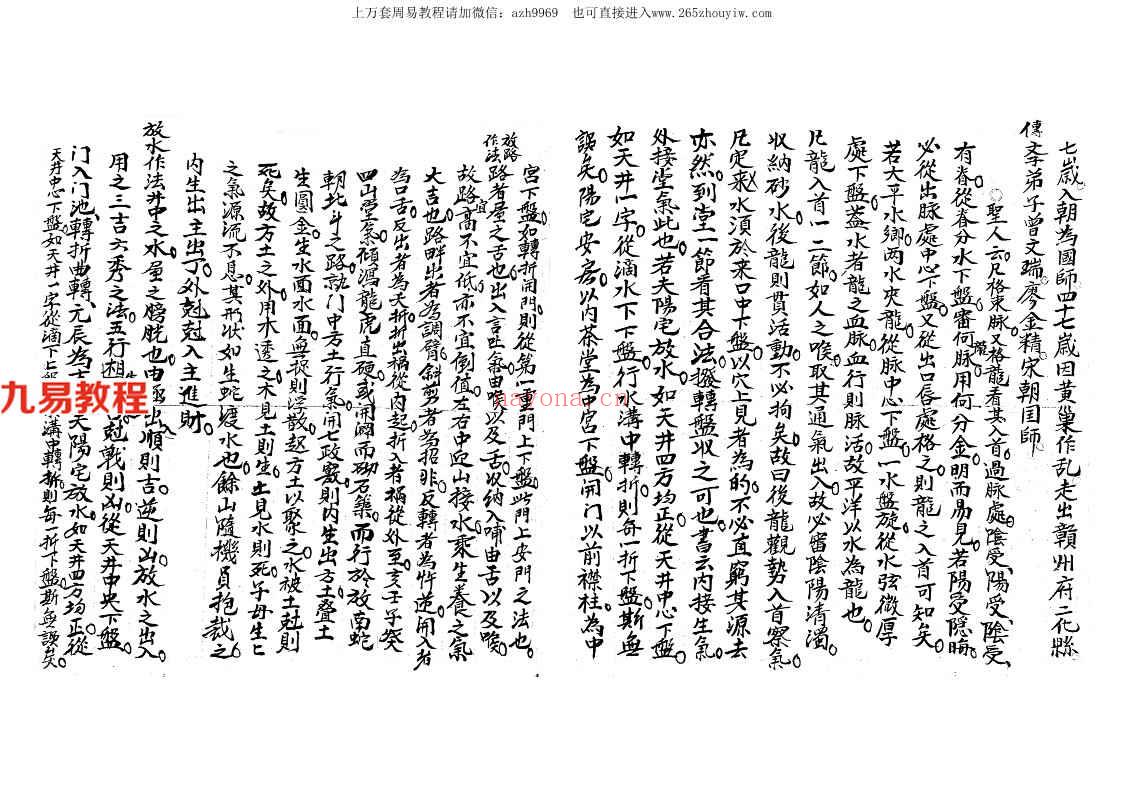 上万套周易教程请加微信：azh9969　也可直接进入www.265zhouyiw.com
七歲入朝為國師四十七歲因黄巢作乱走出贛州府二化縣
傳文弟子曾文瑞廖金精宋朝国師
聖人云凡格來脉又格龍看其入首過脉處陰受陽受陰受
有脊從脊分水下盤審何脉用何分金明而易見若陽受隱晦
必從出脉處中心下盤又從出口唇處格之則龍之入首可知矣
若大平水鄉两水夾龍從脉中心下盤一水盤旋從水弦微厚
處下盤盖水者龍之血脉血行則脉活故平洋以水為龍也
凡龍入首一二節如人之喉取其通氣出入故必審陰陽清濁
收納砂水後龍則貫活動不必拘矣故曰後龍觀勢入首察氣
凡定來水須於來口中下盤以穴上見者為的不必直窮其源去
亦然到堂一節看其合法撥轉盤收之可也書云内接生氣
外接堂氣此也若夫陽宅放水如天井四方均正從天井中心下盤
如天井一字從滴水下下盤行水溝中轉折則每一折下盤斯無
誤矣陽宅安房以内茶堂為中宫下盤開门以前襟柱為中
宫下盤如轉折開門則從第一重門上下盤此門上安門之法也
放路作法路者屋之舌也出入言吐氣由喉以及舌收納入哺由舌以及喉
故路高不宜低亦不宜倒值左右中迎山接水乘生養之氣
大吉也路畔出者為調臂斜剪者為招非反轉者為忤逆開入者
為口舌反出者為夭折折出禍從内起折入者禍從外至亥壬子癸
四山堂氣傾瀉龍虎直硬或開濶而砌石築而行於放南蛇
朝北斗之路就门中方土行氣開七政數則内生出方土叠土
生圓金生水面水面無捉則浮散起方土以聚之水被土尅則
死矣故方土之外用木透之木見土則生土見水則死子母生
之氣源流不息其形状如生蛇渡水也餘山隨機負抱裁之
内生出主出丁外尅尅入主進財
放水作法井中之水屋之膀胱也由極出順則吉逆則凶放水之出入
用之三吉六秀之法五行相尅戰則凶從天井中央下盤
門入门池轉折曲轉元辰為天陽宅放水如天井四方均正從
天井中心下盤如天井一字從滴下上溝中轉折則每一折下盤斯無誤矣
九易教程
nayona.cn